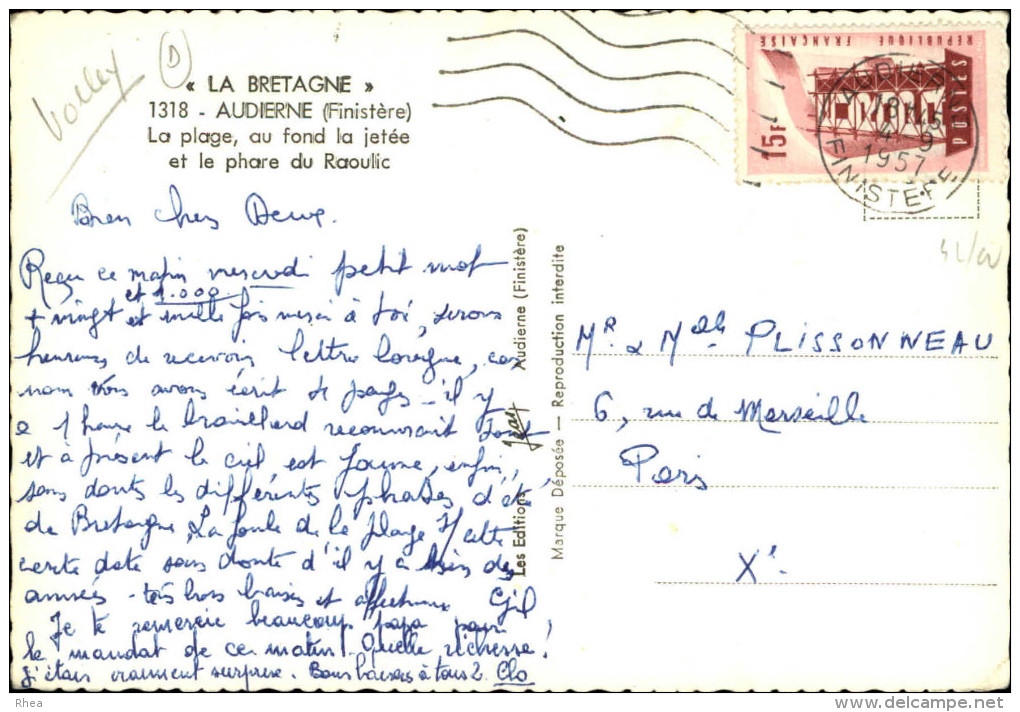 Volley
D
« LA BRETAGNE »
1318 - AUDIERNE (Finistère)
La plage, au fond la jetée
et le phare du Raoulic
RÉPUBLIQUE FRANÇAISE
15F
POSTES
AUDIERNE
18H45
4-9
1957
FINISTÈRE
Bien chers Deux.
Reçu ce matin mercredi petit mot
et 1.000
+ vingt et mille fois merci à toi, serons
heureux de recevoir lettre longue, car
nous vous avons écrit 4 pages - il y
a 1 heure le brouillard recouvrait tout
et à présent le ciel est jaune, enfin,
sans doute les différentes phases d'été
de Bretagne, La foule de la plage
carte date sans doute d'il y a bien des
années - très bons baisers et affectueux Gil
Je te remercie beaucoup papa pour
le mandat de ce matin! Quelle richesse!
j'étais vraiment surprise. Bons baisers à tous 2. Clo
Les Editions Jean Audierne (Finistère)
Marque Déposée — Reproduction interdite
Mr & Melle PLISSONNEAU
6, rue de Marseille
Paris
Xe
Rhea
www.delcampe.net